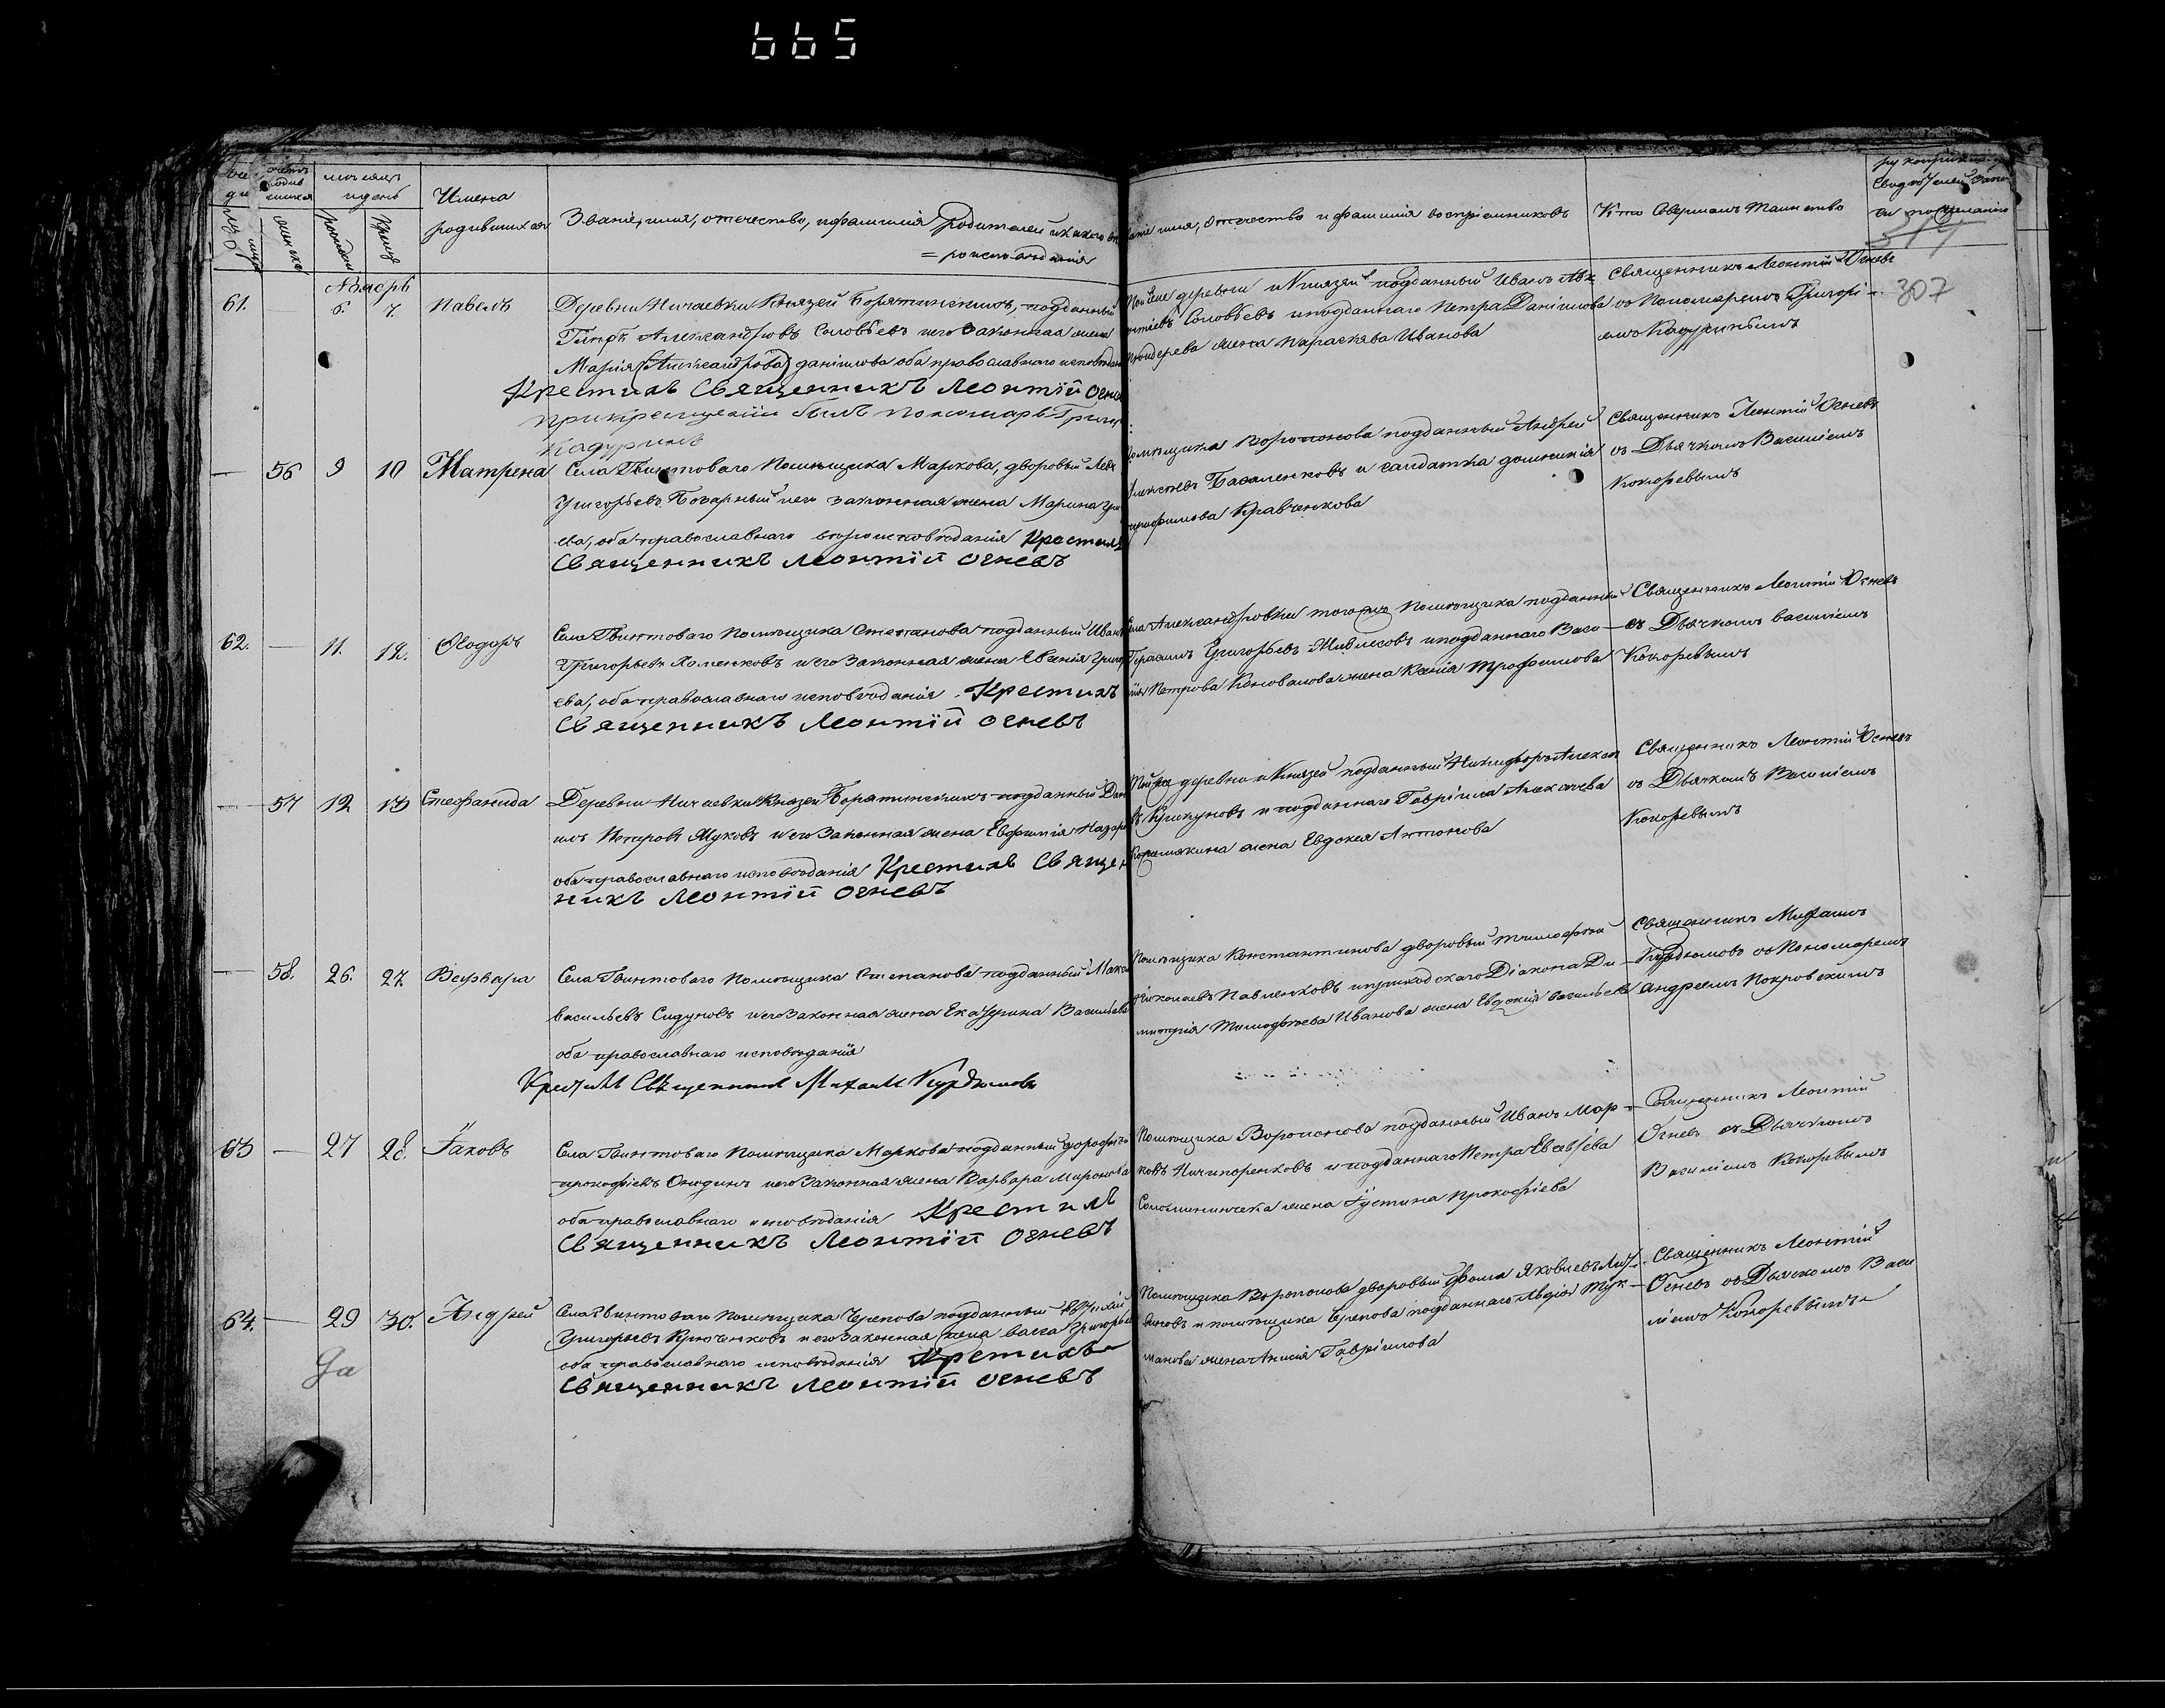 665
мѣсяцъ
и день
Имена
родившихся
Званіе, имя, отечество, и фамилія родителей и какого вѣ
= роисповѣданія
имя, отечество и фамилія воспріемниковъ
Кто Совершалъ Таинство
307
Ноябрь
61. 6. 7. Павелъ
Деревни Ничаевки Князей Борятинскихъ, подданный
Александровъ Соловьевъ и его Законная жена
Марія (Александрова) Данилова оба православнаго исповѣдан
Крестилъ Священникъ Леонтій Огне
При крещеніи былъ пономарь Григор
Кадуринъ
деревни и Князей подданный Иванъ
Соловьевъ и подданнаго Петра Данилова
жена Параскева Иванова
Священникъ Леонтій Огневъ
съ Пономаремъ Григорі-
емъ Кадуринымъ
— 56 9 10 Матрена
Села Гвинтоваго Помѣщика Маркова, дворовый
Григорьевъ Поварный и его законная жена Марина
ева, оба православнаго вероисповѣданія Крестилъ
Священникъ Леонтій Огневъ
Помѣщика Воропонова подданный Андрей
Алексѣевъ и салдатка
Трофимова Кравченкова
Священникъ Леонтій Огневъ
съ Дьячкомъ Василіемъ
Кокоревымъ
62. — 11. 12. Ѳеодоръ
Села Гвинтоваго Помѣщика Степанова подданный Иванъ
Григорьевъ Хоменковъ и его Законная жена Евгенія Григор
ева, оба православнаго исповѣданія. Крестилъ
Священникъ Леонтій Огневъ
Села Александровки того же Помѣщика подданный
Герасимъ Григорьевъ и подданнаго Васи —
лія Петрова Коновалова жена Ксенія Трофимова
Священникъ Леонтій Огневъ
съ Дьячкомъ василіемъ
Кокоревымъ
— 57 12 13 Стефанида
Деревни Ничаевки Князей Борятинскихъ подданный Дан
илъ Петровъ Жуковъ и его Законная жена Евфимія Назаро
оба православнаго исповѣданія Крестилъ Священ
никъ Леонтій Огневъ
деревни и Князей подданный Никифоръ Алексѣе
и подданнаго Гавріила Алексѣева
жена Евдокея Антонова
Священникъ Леонтій Огневъ
съ Дьячкомъ Василіемъ
Кокоревымъ
— 58. 26. 27. Варвара
Села Гвинтоваго Помѣщика Степанова подданный Мака
васильевъ Сидуновъ и его Законная жена Екатерина Васильева
оба православнаго исповѣданія
Крестилъ Священникъ Михаилъ Курдюмовъ
Помѣщика Константинова дворовый Тимофей
Николаевъ Павленковъ и приходскаго Діакона Ди —
митрія Тимофѣева Иванова жена Евдокія васильева
Священникъ Михаилъ
Курдюмовъ съ Пономаремъ
Андреемъ Покровскимъ
63 — 27 28. Іаковъ
Села Гвинтоваго Помѣщика Маркова подданный
Прокофіевъ и его Законная жена Варвара Миронова
оба православнаго исповѣданія Крестилъ
Священникъ Леонтій Огневъ
Помѣщика Воропонова подданный Иванъ Мар —
ковъ Ничипоренковъ и подданнаго Петра Евсѣева
жена Іустина Прокофіева
Священникъ Леонтій
Огневъ съ Дьячкомъ
Василіемъ Кокоревымъ
64. — 29 30. Андрей
Села Гвинтоваго Помѣщика Черепова подданный
Григорьевъ Крюченковъ и его Законная жена васса Григорье
оба православнаго исповѣданія Крестилъ
Священникъ Леонтій Огневъ
Помѣщика Воропонова дворовый Фома Яковлевъ
и помѣщика Черепова подданнаго Авдія
жена Анисія Гавріилова
Священникъ Леонтій
Огневъ съ Дьячкомъ Васи
ліемъ Кокоревымъ